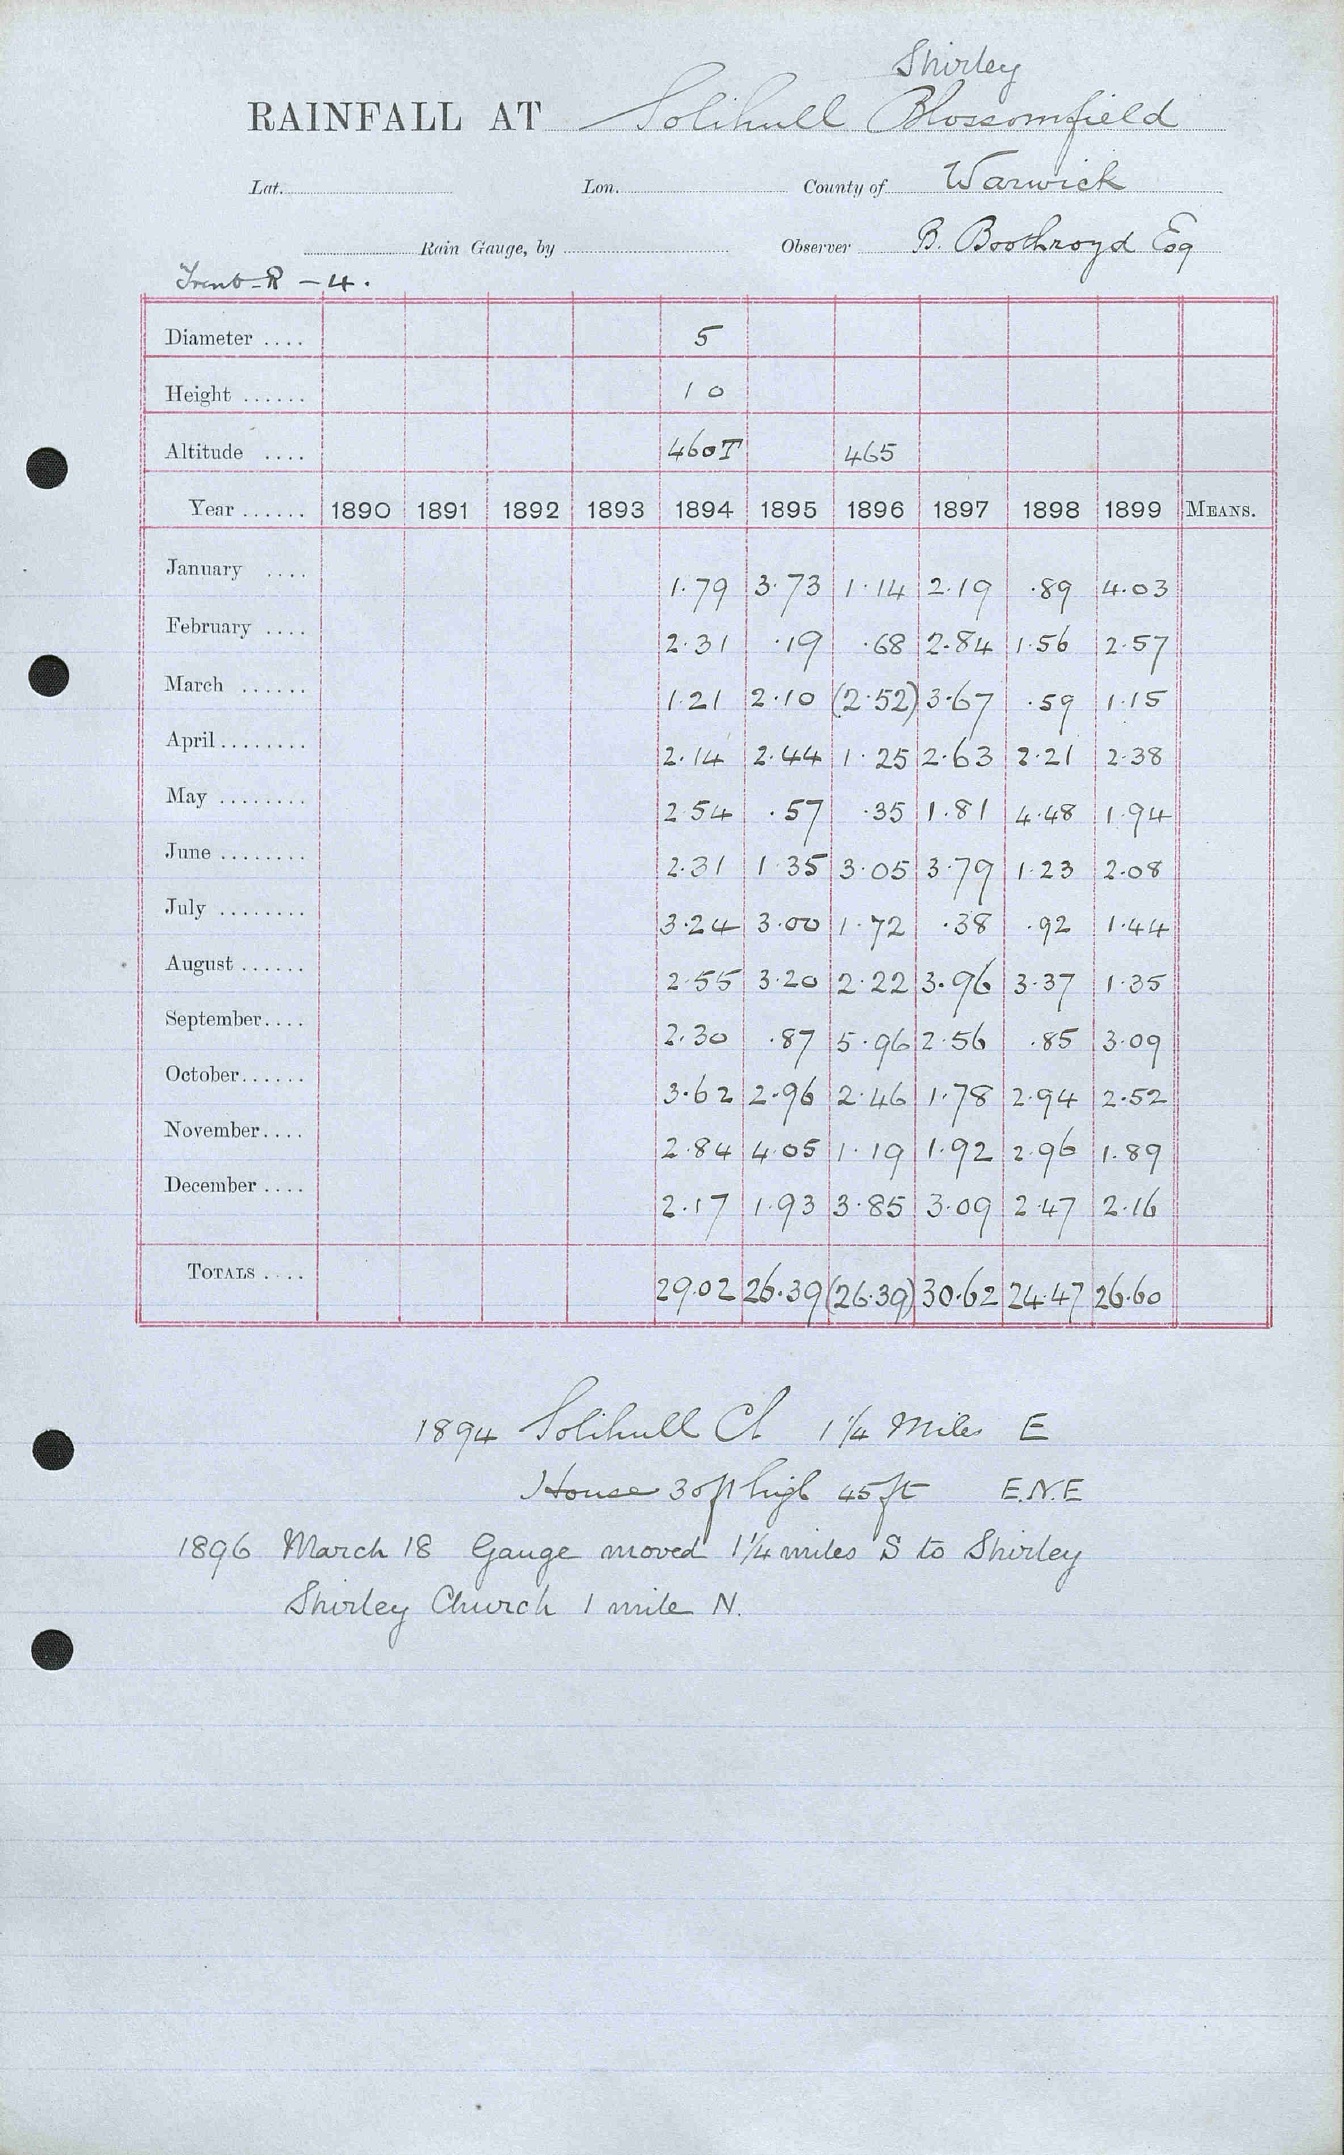 Shirley
RAINFALL AT Solihull Blossomfield
Lat. Lon. County of Warwick
Rain Gauge, by Observer B. Boothroyd Esq
Trent R - 4.
Diameter .... 5
Height ...... 10
Altitude .... 460T 465
Year ...... 1890 1891 1892 1893 1894 1895 1896 1897 1898 1899 MEANS.
January .... 1.79 3.73 1.14 2.19 .89 4.03
February .... 2.31 .19 .68 2.84 1.56 2.57
March ...... 1.21 2.10 (2.52) 3.67 .59 1.15
April ........ 2.14 2.44 1.25 2.63 2.21 2.38
May ........ 2.54 .57 .35 1.81 4.48 1.94
June ........ 2.31 1.35 3.05 3.79 1.23 2.08
July ........ 3.24 3.00 1.72 .38 .92 1.44
August ...... 2.55 3.20 2.22 3.96 3.37 1.35
September .... 2.30 .87 5.96 2.56 .85 3.09
October ...... 3.62 2.96 2.46 1.78 2.94 2.52
November .... 2.84 4.05 1.19 1.92 2.96 1.89
December .... 2.17 1.93 3.85 3.09 2.47 2.16
TOTALS .... 29.02 26.39 (26.39) 30.62 24.47 26.60
1894 Solihull Ch 1 1/4 Miles E
House 30ft high 45ft E.N.E
1896 March 18 Gauge moved 1 1/4 miles S to Shirley
Shirley Church 1 mile N.